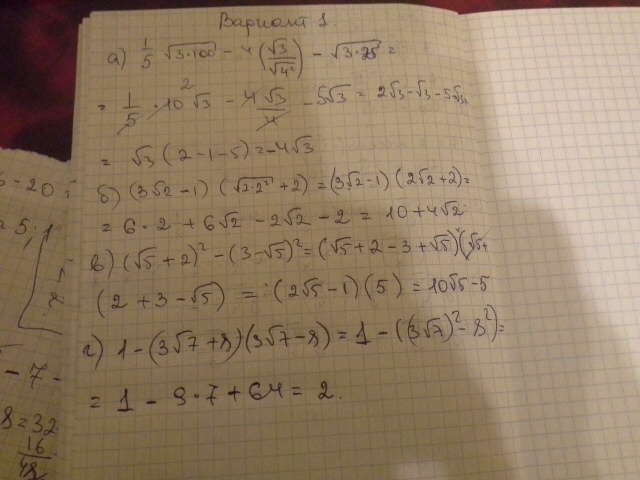 Вариант 1.
а) 1/5 √3·100 - 4(√3/√4²) - √3·25 =
= 1/5 · 10√3 - 4√3/4 - 5√3 = 2√3-√3-5√3=
= √3 (2-1-5)=-4√3
б) (3√2-1) (√2·2²+2)=(3√2-1) (2√2+2)=
= 6·2 + 6√2 - 2√2 - 2 = 10+4√2
в) (√5+2)² - (3-√5)²=(√5+2-3+√5)(√5+
(2+3-√5) = (2√5-1)(5) = 10√5-5
г) 1-(3√7+8)(3√7-8) = 1-((3√7)²-8²)=
= 1 - 9·7+64= 2.
-20
5;1
- 7 -
8=32
16
48